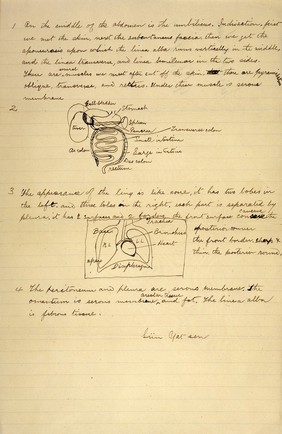 1. On the middle of the abdomen is the umbilicus, In disection, first
we cut the skin, next the subcutaneous fascia then we get the
aponeurosis upon which the linea alba runs vertically in the middle,
and the linea transversa, and linea semilunar in the two sides.
There are muscles we meet after cut off the skin, then are
oblique, transversus, and rectus. Under these muscle is serous
membrane
2.
Gall bladder
Stomach
Liver
Spleen
Pancreas
Transverse colon
Small intestine
As colon
Large intestine
Des colon
Rectum
3 The appearance of the lung is like cone, it has two lobes in
the left and three lobes in the right, each part is separated by
pleura, it has 2 surfaces and 2 borders, the front surface
Trachea
posterior
Base
Bronchus
the front border
R L
L L
Heart
then the posterior
apex
Diaphragm
4 The peritoneum and pleura are serous membrane, the
areolar tissue
omentum is serous membrane, and fat. The linea alba
is fibrous tissue.
Sün Yat sen